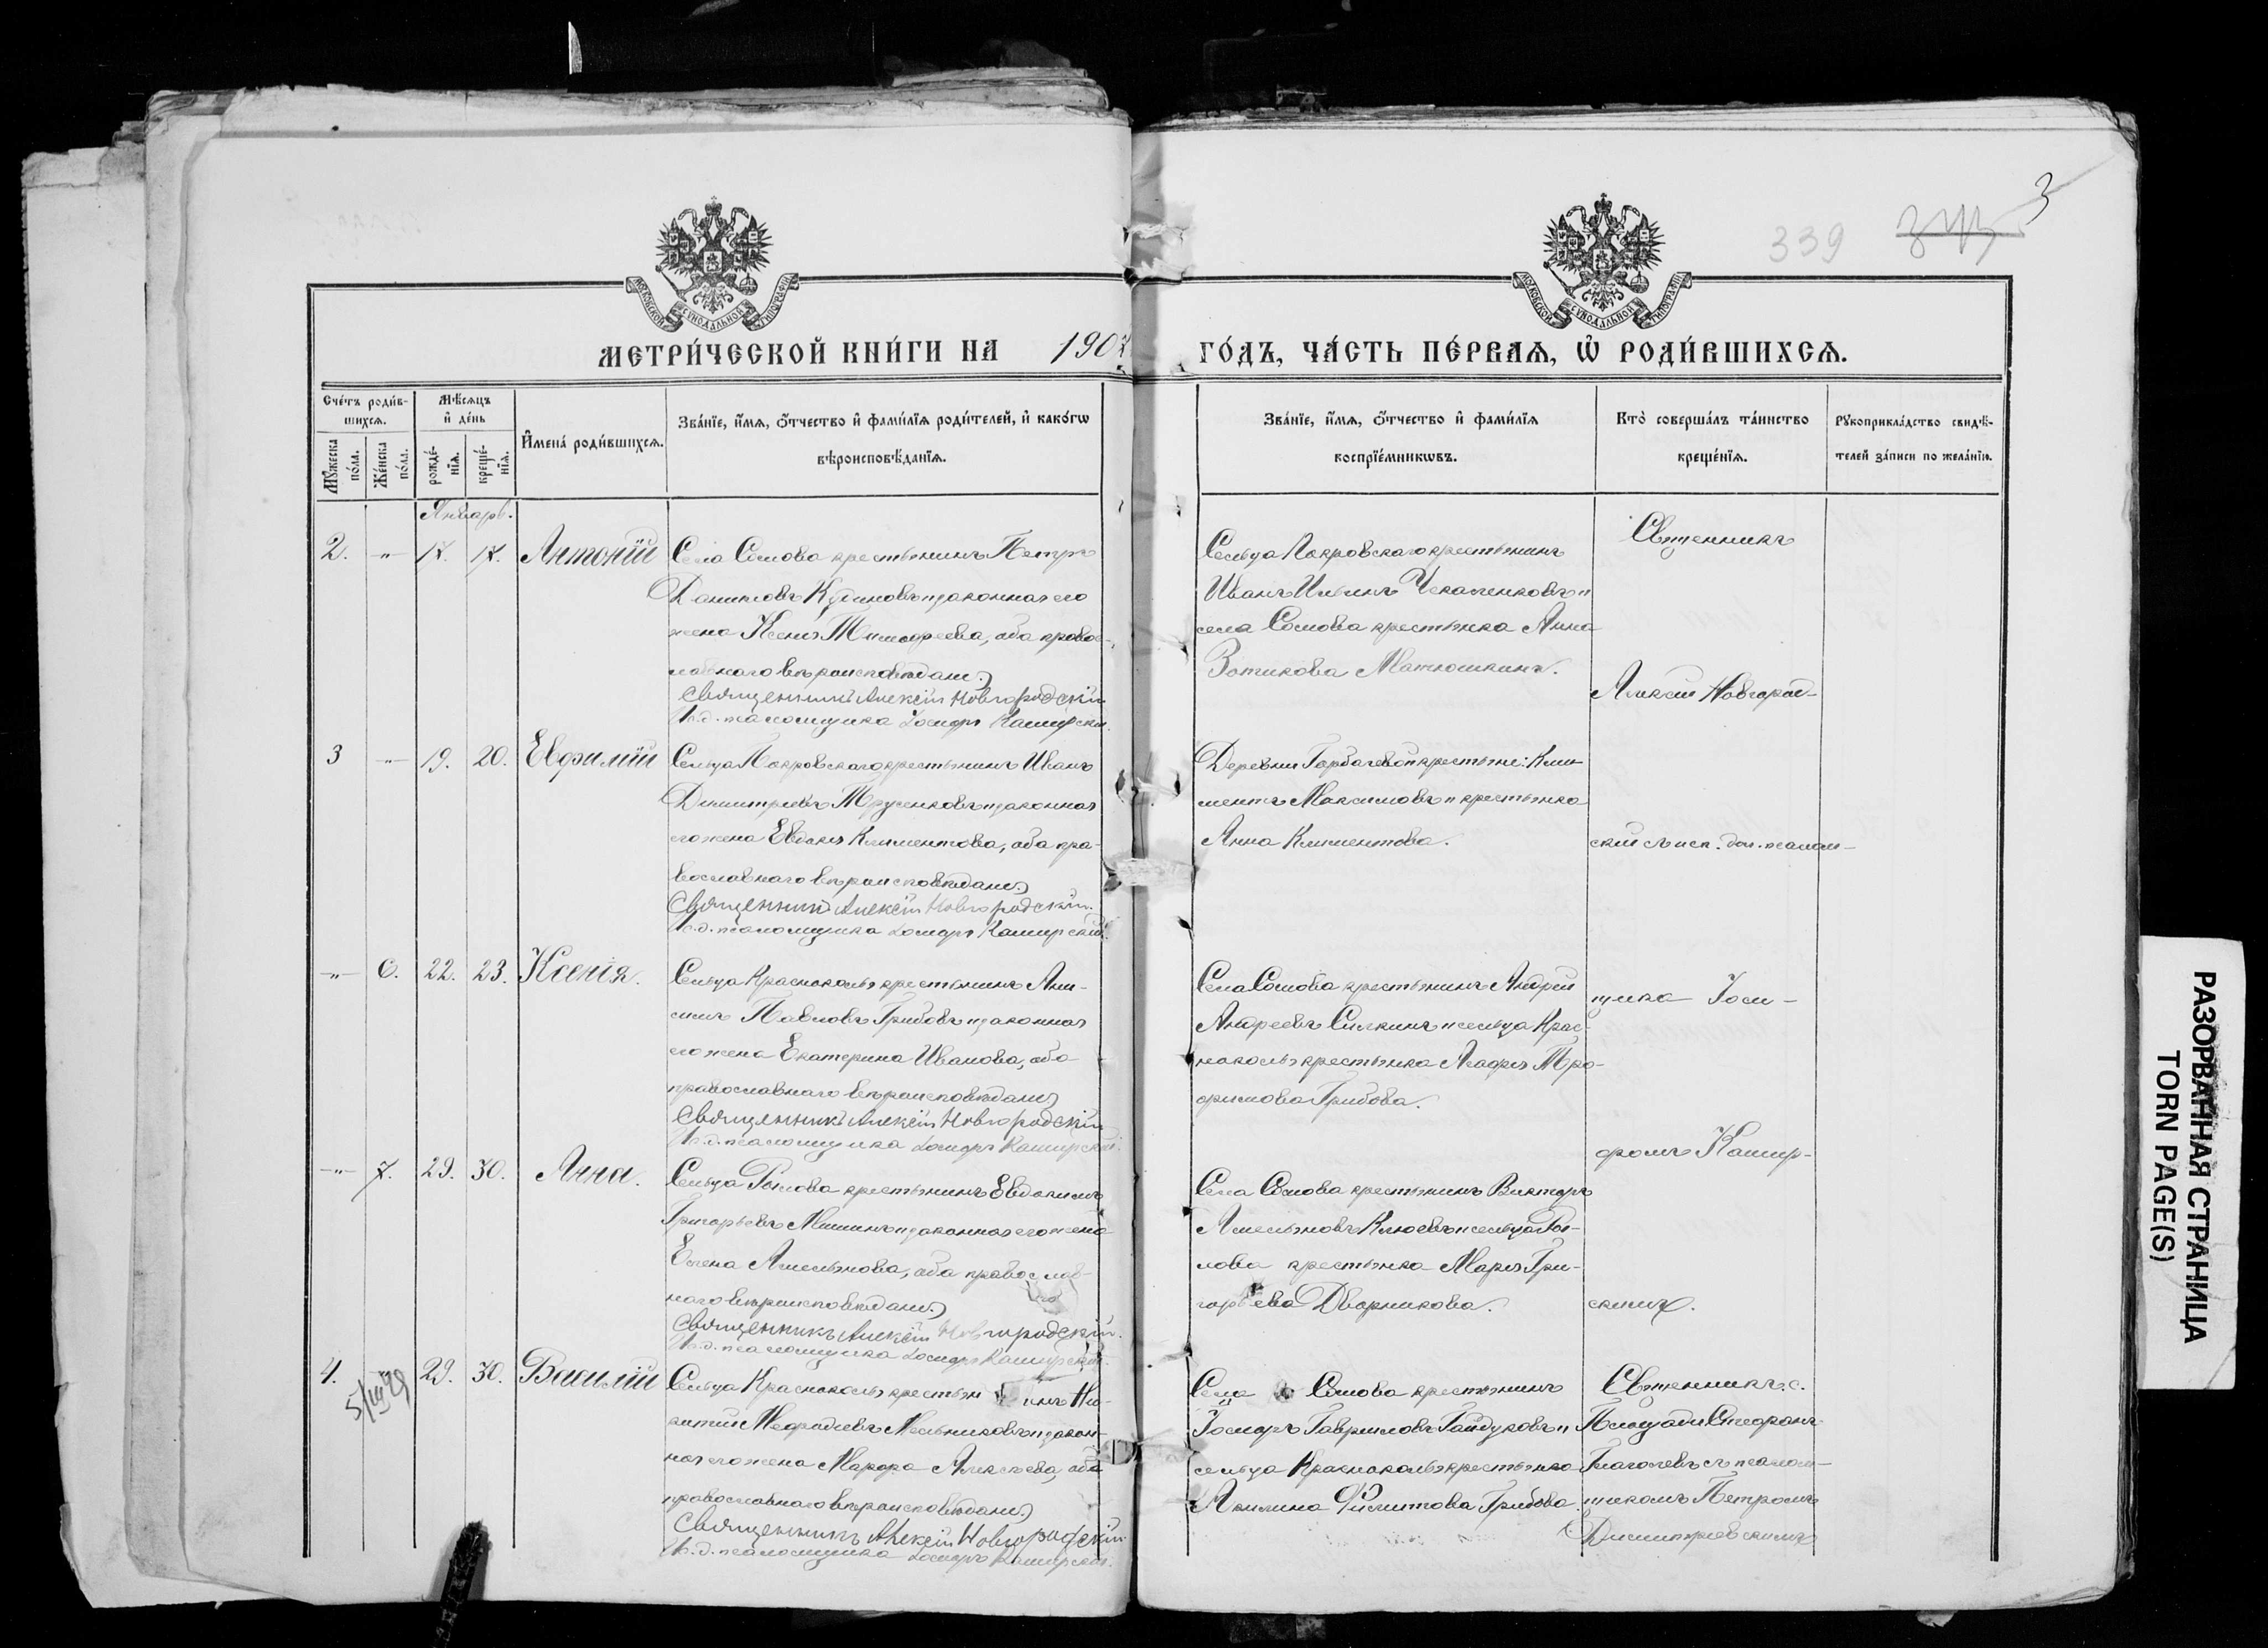 339
3
МОСКОВСКОЙ СѴНОДАЛЬНОЙ ТИПОГРАФІИ
МОСКОВСКОЙ СѴНОДАЛЬНОЙ ТИПОГРАФІИ
МЕТРИ́ЧЕСКОЙ КНИ́ГИ НА 1907 ГО́ДЪ, ЧА́СТЬ ПЕ́РВАѦ, Ѡ҆ РОДИ́ВШИХСѦ.
Сче́тъ роди́в-
шихсѧ.
Мꙋ́жеска по́ла.
Же́нска по́ла.
Мѣ́сѧцъ
и҆ де́нь
рожде́-
нїѧ.
креще́-
нїѧ.
И҆мена̀ роди́вшихсѧ.
Зва́нїе, и҆́мѧ, ѻ҆́тчество и҆ фами́лїѧ роди́телей, и҆ како́гѡ
вѣроисповѣ́данїѧ.
Зва́нїе, и҆́мѧ, ѻ҆́тчество и҆ фами́лїѧ
воспрїе́мникѡвъ.
Кто̀ соверша́лъ та́инство
креще́нїѧ.
Рꙋкоприкла́дство свидѣ́-
телей за́писи по жела́нїю.
Январь.
2. -"- 17. 17. Антоній
Села Сомова крестьянинъ Петръ
Даниловъ и законная его
жена Ксенія Тимофеева, оба правос-
лавнаго вѣроисповѣданія
Священникъ Алексій Новгородскій
И.д. псаломщика Іосифъ Каширскій.
Сельца Покровскаго крестьянинъ
Иванъ Ильинъ и
села Сомова крестьянка Анна
Зотикова Матюшкина.
Священникъ
Алексій Новгород-
3 -"- 19. 20. Евфимій
Сельца Покровскаго крестьянинъ Иванъ
Димитріевъ и законная
его жена Евдокія Климентова, оба пра-
вославнаго вѣроисповѣданія
Священникъ Алексій Новгородскій.
И.д. псаломщика Іосифъ Каширскій.
Деревни Горбачевой крестьяне: Кли-
ментъ Максимовъ и крестьянка
Анна Климентова.
скій съ исп. дол. псалом-
-"- 6. 22. 23. Ксенія.
Сельца Красноколья крестьянинъ Ани-
симъ Павловъ Грибовъ и законная
его жена Екатерина Иванова, оба
православнаго вѣроисповѣданія
Священникъ Алексій Новгородскій
И.д. псаломщика Іосифъ Каширскій.
Села Сомова крестьянинъ Андрей
Андреевъ Силкинъ и сельца Крас-
ноколья крестьянка Агафія Тро-
фимова Грибова.
щика Іоси-
фомъ Кашир-
-"- 7. 29. 30. Анна.
Сельца крестьянинъ Евдокимъ
Григорьевъ Мишинъ и законная его жена
Елена Амельянова, оба православ-
наго вѣроисповѣданія
Священникъ Алексій Новгородскій.
И.д. псаломщика Іосифъ Каширскій.
Села Сомова крестьянинъ Викторъ
Амельяновъ Клюевъ и сельца
крестьянка Марія Гри-
горьева Дворникова.
скимъ.
4. 29. 30. Василій
Сельца Красноколья крестьянинъ Ни-
китий Мефодіевъ Мельниковъ и закон-
ная его жена Марфа Алексѣева, оба
православнаго вѣроисповѣданія
Священникъ Алексій Новгородскій
И.д. псаломщика Іосифъ Каширскій.
Села Сомова крестьянинъ
Іосифъ Гавриловъ Гайдуковъ и
сельца Красноколья крестьянка
Акилина Филитова Грибова.
Священникъ с.
Площади Стефанъ
Глаголевъ съ псалом-
щикомъ Петромъ
Димитріевскимъ
РАЗОРВАННАЯ СТРАНИЦА
TORN PAGE(S)